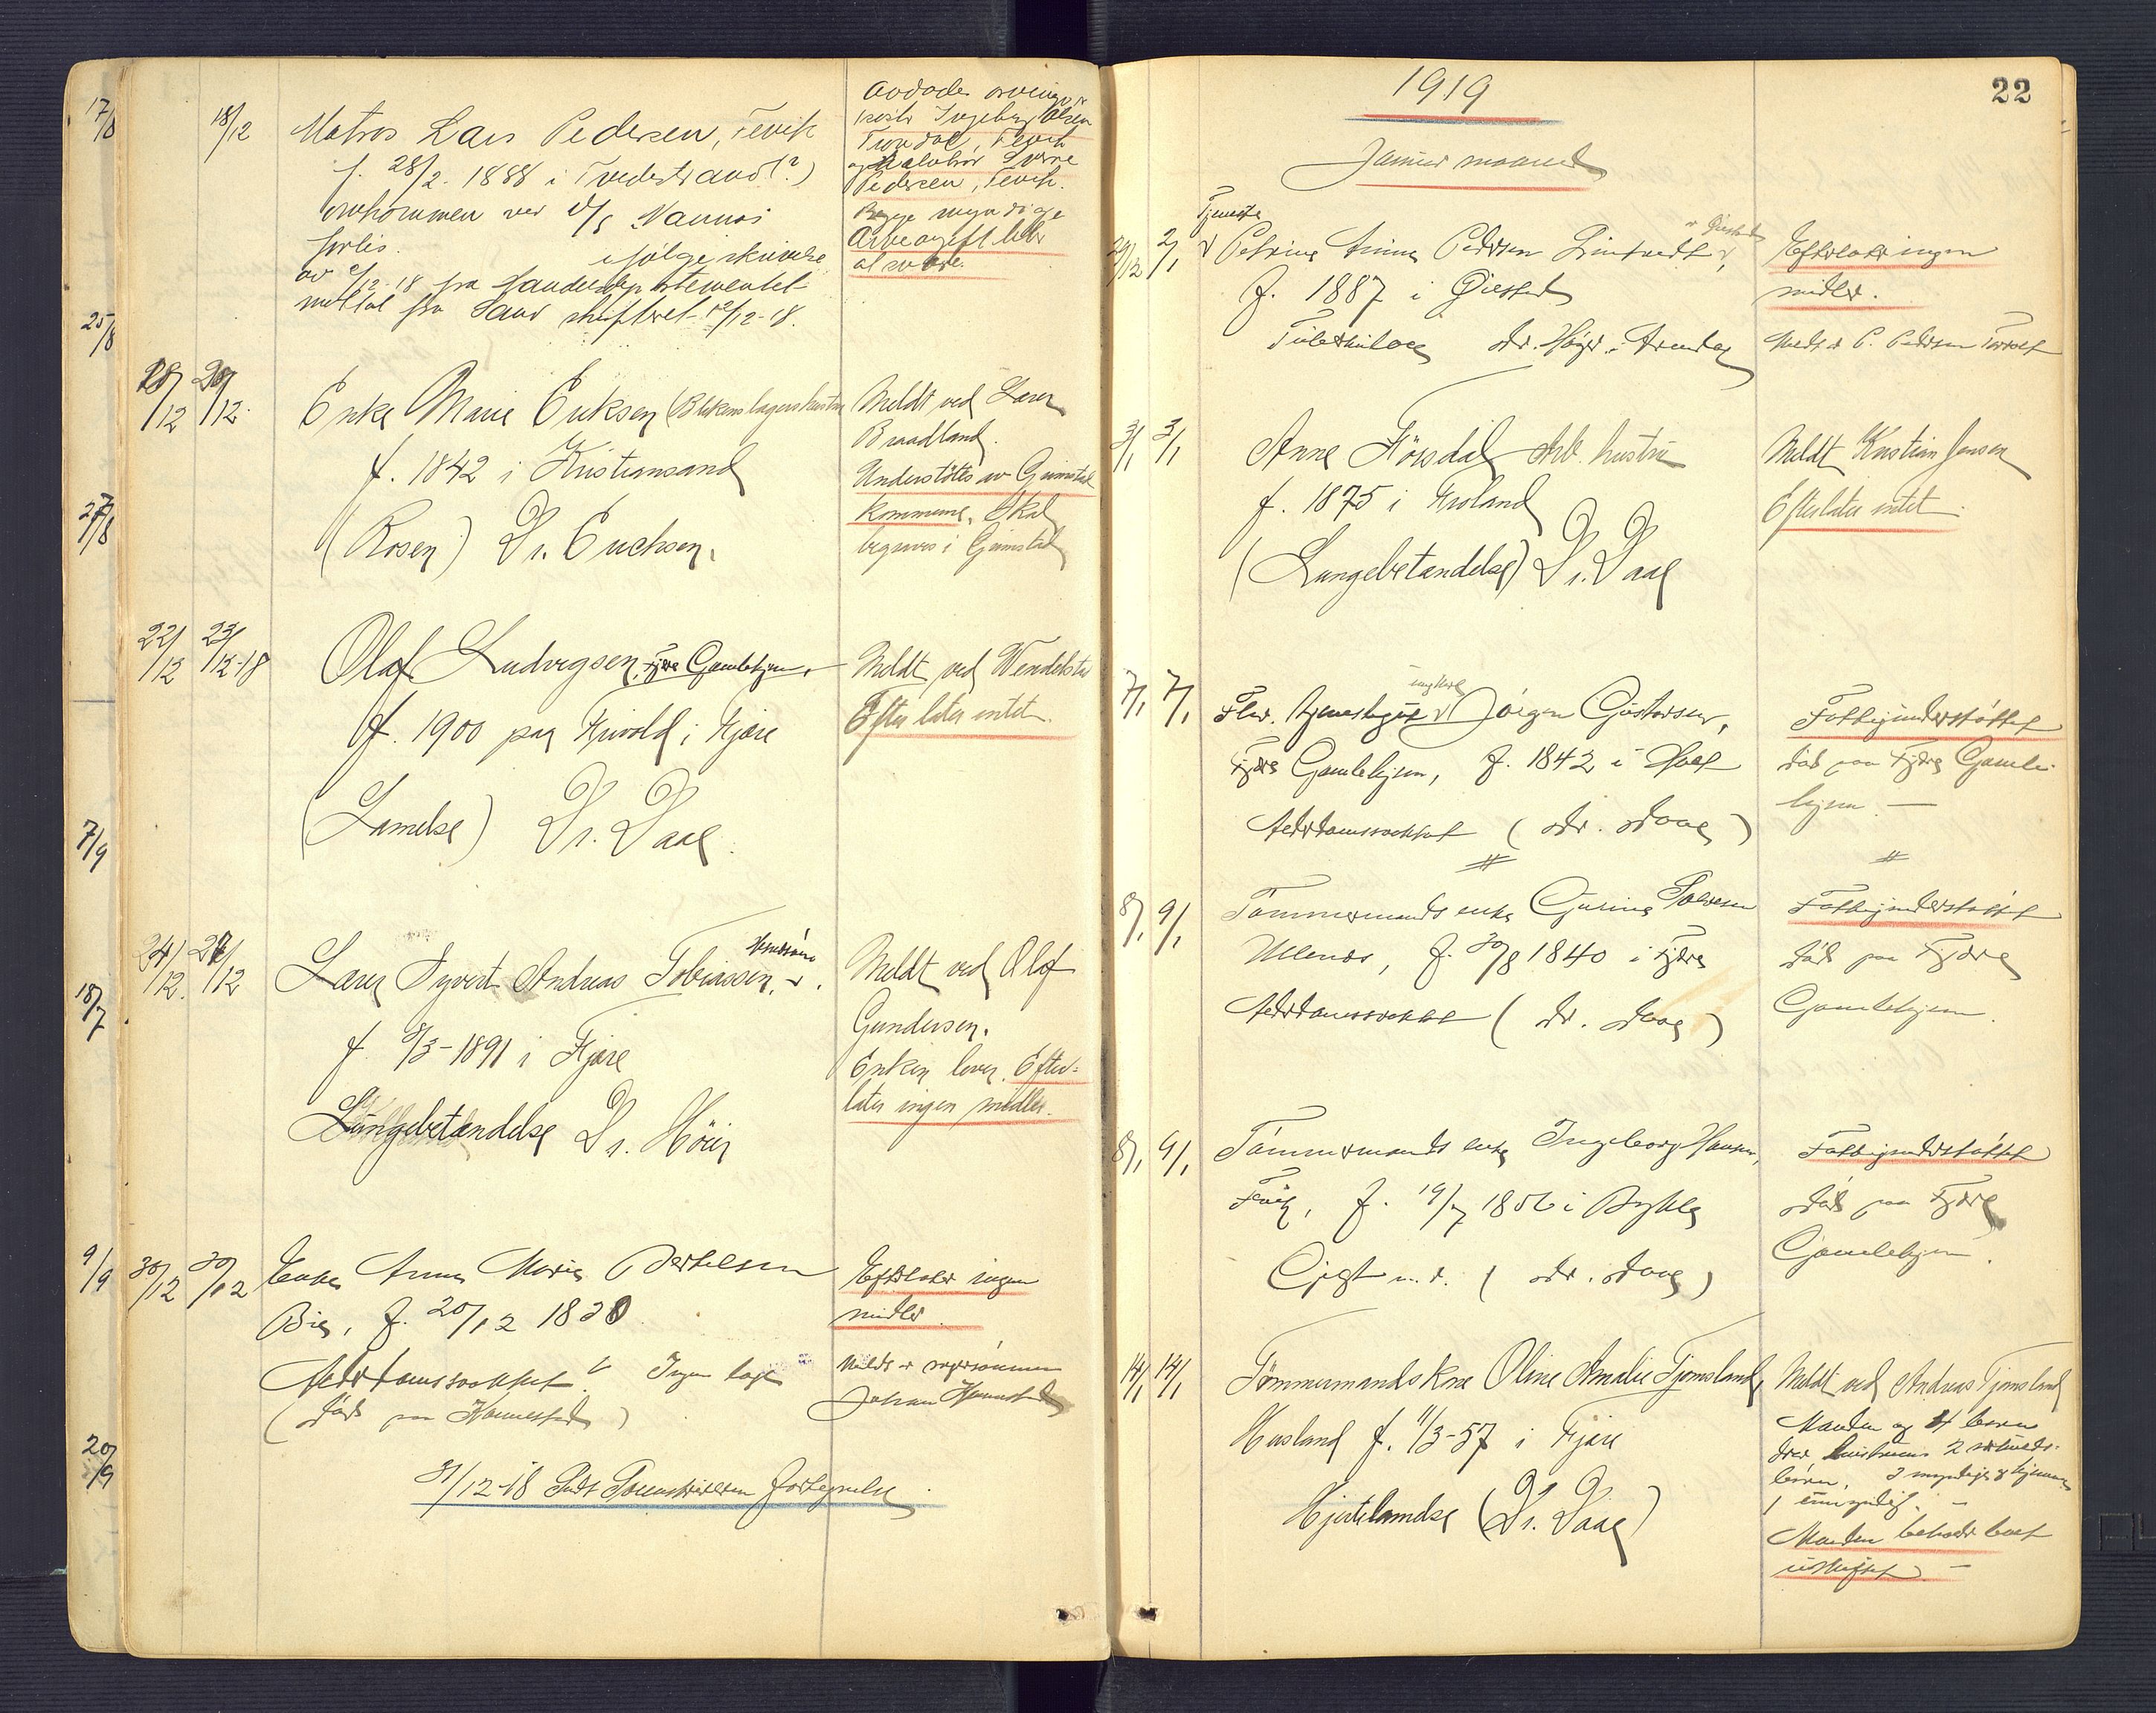 17/8
25/8
27/8
7/9
18/7
9/9
20/9
18/12
Matros Lars Pedersen, Fevik
f. 28/2. 1888 i Tvedestrand(?)
omkommen ved D/S "Vannøs"
forlis. ifølge skrivelse
av 12-18 fra Handelsdepartementet
mottat fra Sand skifteret 12/12-18.
Avdødes arvinger
søster Ingeborg Olsen
Fevik
og halvbror Sverre
Pedersen, Fevik.
Begge myndige
Arveavgift blir
at svare.
28/12 28/12.
Enke Marie Eriksen (Blikkenslagerhustru
f. 1842 i Kristiansand
(Rosen) Dr. Erichsen.
Meldt ved Lærer
Braadland.
Understøttes av Grimstad
kommune. Skal
begraves i Grimstad
22/12 23/12-18
Olaf Ludvigsen, Fjære Gamlehjem.
f. 1900 paa Frivold i Fjære
(Lamelse) Dr. Daae.
Meldt ved Wendelbo
Efterlater intet.
24/12. 27/12
Lærer Syvert Andreas Tobiassen.
f. 9/3-1891 i Fjære
Lungebetændelse Dr. Høier
Meldt ved Olaf
Gundersen.
Enken lever. Efter-
later ingen midler.
30/12 30/12
Enke Anne Marie Bertelsen
Bie, f. 20/12 1830
Alderdomssvakhet. Ingen læge
(Død paa Hannestad)
Efterlater ingen
midler.
Meldt av svigersønnen
Johan Hannestad
31/12-18 Sendt Sorenskriveren fortegnelse.
22
1919
Januar maaned
29/12 2/1
Tjeneste
Petrine Anna Pedersen Rimtvedt,
f. 1887 i Øiestad
Tuberkulose Dr. Høyer, Arendal
Efterlater ingen
midler.
Meldt av P. Pedersen
3/1 3/1
Anne Førsdal Arb. hustru
f. 1875 i Froland
(Lungebetændelse) Dr. Daae
Meldt Kristian Jensen
Efterlater intet.
7/1 7/1
Fhv. tjenestegut Jørgen Gustavsen,
ungkarl
Fjære Gamlehjem, f. 1842 i Holt
Alderdomssvakhet (Dr. Daae)
Fattigunderstøttet
Død paa Fjære Gamle-
hjem —
8/1 9/1
Tømmermands enke Gurine Salvesen
Ullenes, f. 30/8 1840 i Fjære
Alderdomssvakhet (Dr. Daae)
Fattigunderstøttet
Død paa Fjære
Gamlehjem.
8/1 9/1
Tømmermands enke Ingeborg Hansen,
Fevik, f. 19/7 1856 i Bykle
Gigt m. v. (Dr. Daae)
Fattigunderstøttet
Død paa Fjære
Gamlehjem.
14/1 14/1
Tømmermandskone Oline Amalie Tjomsland,
Hasland f. 11/3-57 i Fjære
Hjertelamelse (Dr. Daae)
Meldt ved Andreas Tjomsland
Manden og 4 barn
børn. 3 myndige
1 umyndig. —
Manden beholder boet
uskiftet. —